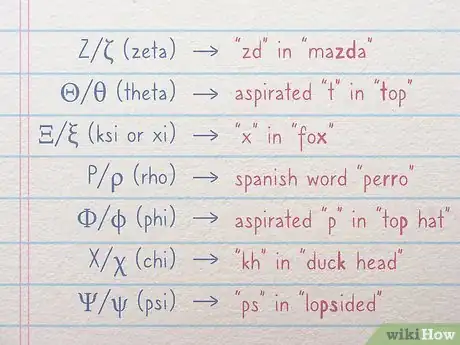 Ζ/ζ (zeta) → "zd" in "mazda"
Θ/θ (theta) → aspirated "t" in "top"
Ξ/ξ (ksi or xi) → "x" in "fox"
Ρ/ρ (rho) → spanish word "perro"
Φ/ϕ (phi) → aspirated "p" in "top hat"
Χ/χ (chi) → "kh" in "duck head"
Ψ/ψ (psi) → "ps" in "lopsided"
wikiHow